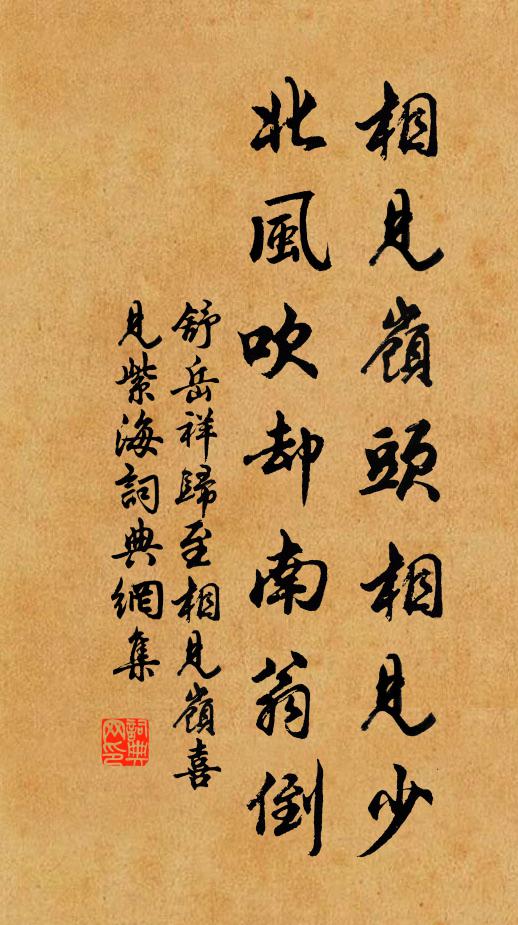 相見嶺頭相見少
北風吹却南翁倒
舒岳祥歸至相見嶺喜
見紫海詞典網集
詞典
网印